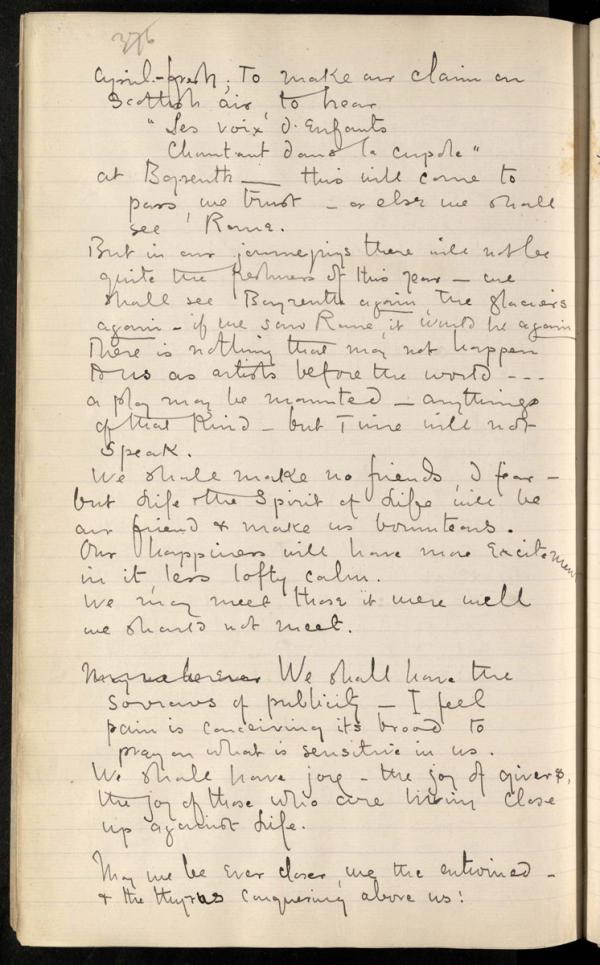 376
April-fresh; To make our claim on
Scottish air, to hear
"Les voix d'Enfants
Chantant dans la cupole"
at Bayreuth — this will come to
pass, we trust — or else we shall
see Rome.
But in our journeyings there will not be
quite the freshness of this year — we
shall see Bayreuth again, the glaciers
again — if we saw Rome, it would be again
There is nothing that may not happen
to us as artists before the world - - -
a play may be mounted — anything
of that kind — but Time will not
speak.
We shall make no friends, I fear —
but Life & the Spirit of Life will be
our friend & make us bounteous.
Our happiness will have more Excitement
in it, less lofty calm.
We may meet those it were well
we should not meet.
We shall have the
sorrows of publicity — I feel
pain is conceiving its brood to
prey on what is sensitive in us.
We shall have joy — the joy of givers,
the joy of those who are living close
up against Life.
May we be Ever closer, we the entwined —
& the thyrsus conquering above us!